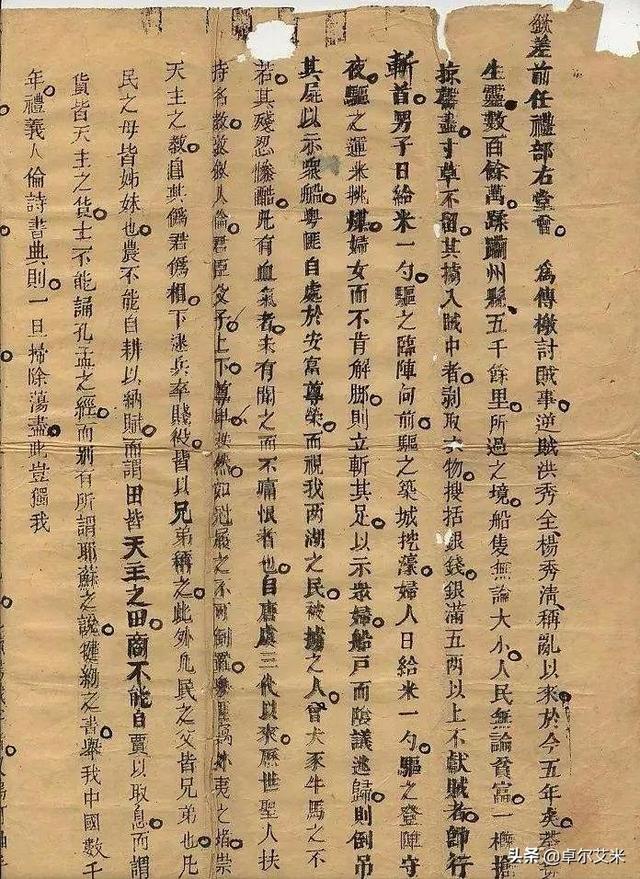 欽差前任禮部右堂曾　為傳檄討賊事逆賊洪秀全楊秀清稱亂以來於今五年矣荼毒
生靈數百餘萬蹂躪州縣五千餘里所過之境船隻無論大小人民無論貧富一概搶
掠罄盡寸草不留其擄入賊中者剥取衣物搜括銀錢銀滿五两以上不獻賊者即行
斬首男子日給米一勺驅之臨陣向前驅之築城挖濠婦人日給米一勺驅之登陣守
夜驅之運米挑煤婦女而不肯解脚則立斬其足以示眾婦船户而陰議逃歸則倒吊
其屍以示衆船粵匪自處於安富尊榮而視我两湖之民被擄之人曾犬豕牛馬之不
若其殘忍慘酷凡有血氣者未有聞之而不痛恨者也自唐虞三代以來歷世聖人扶
持名教敦敘人倫君臣父子上下尊卑秩然如冠履之不可倒置粵匪竊外夷之緒崇
天主之教自其僞君僞相下逮兵卒賤役皆以兄弟稱之此外凡民之父皆兄弟也凡
民之母皆姊妹也農不能自耕以納賦而謂田皆天主之田商不能自賈以取息而謂
貨皆天主之貨士不能誦孔孟之經而別有所謂耶蘇之說新約之書舉我中國數千
年禮義人倫詩書典則一旦掃除蕩盡此豈獨我
头条 @卓尔艾米